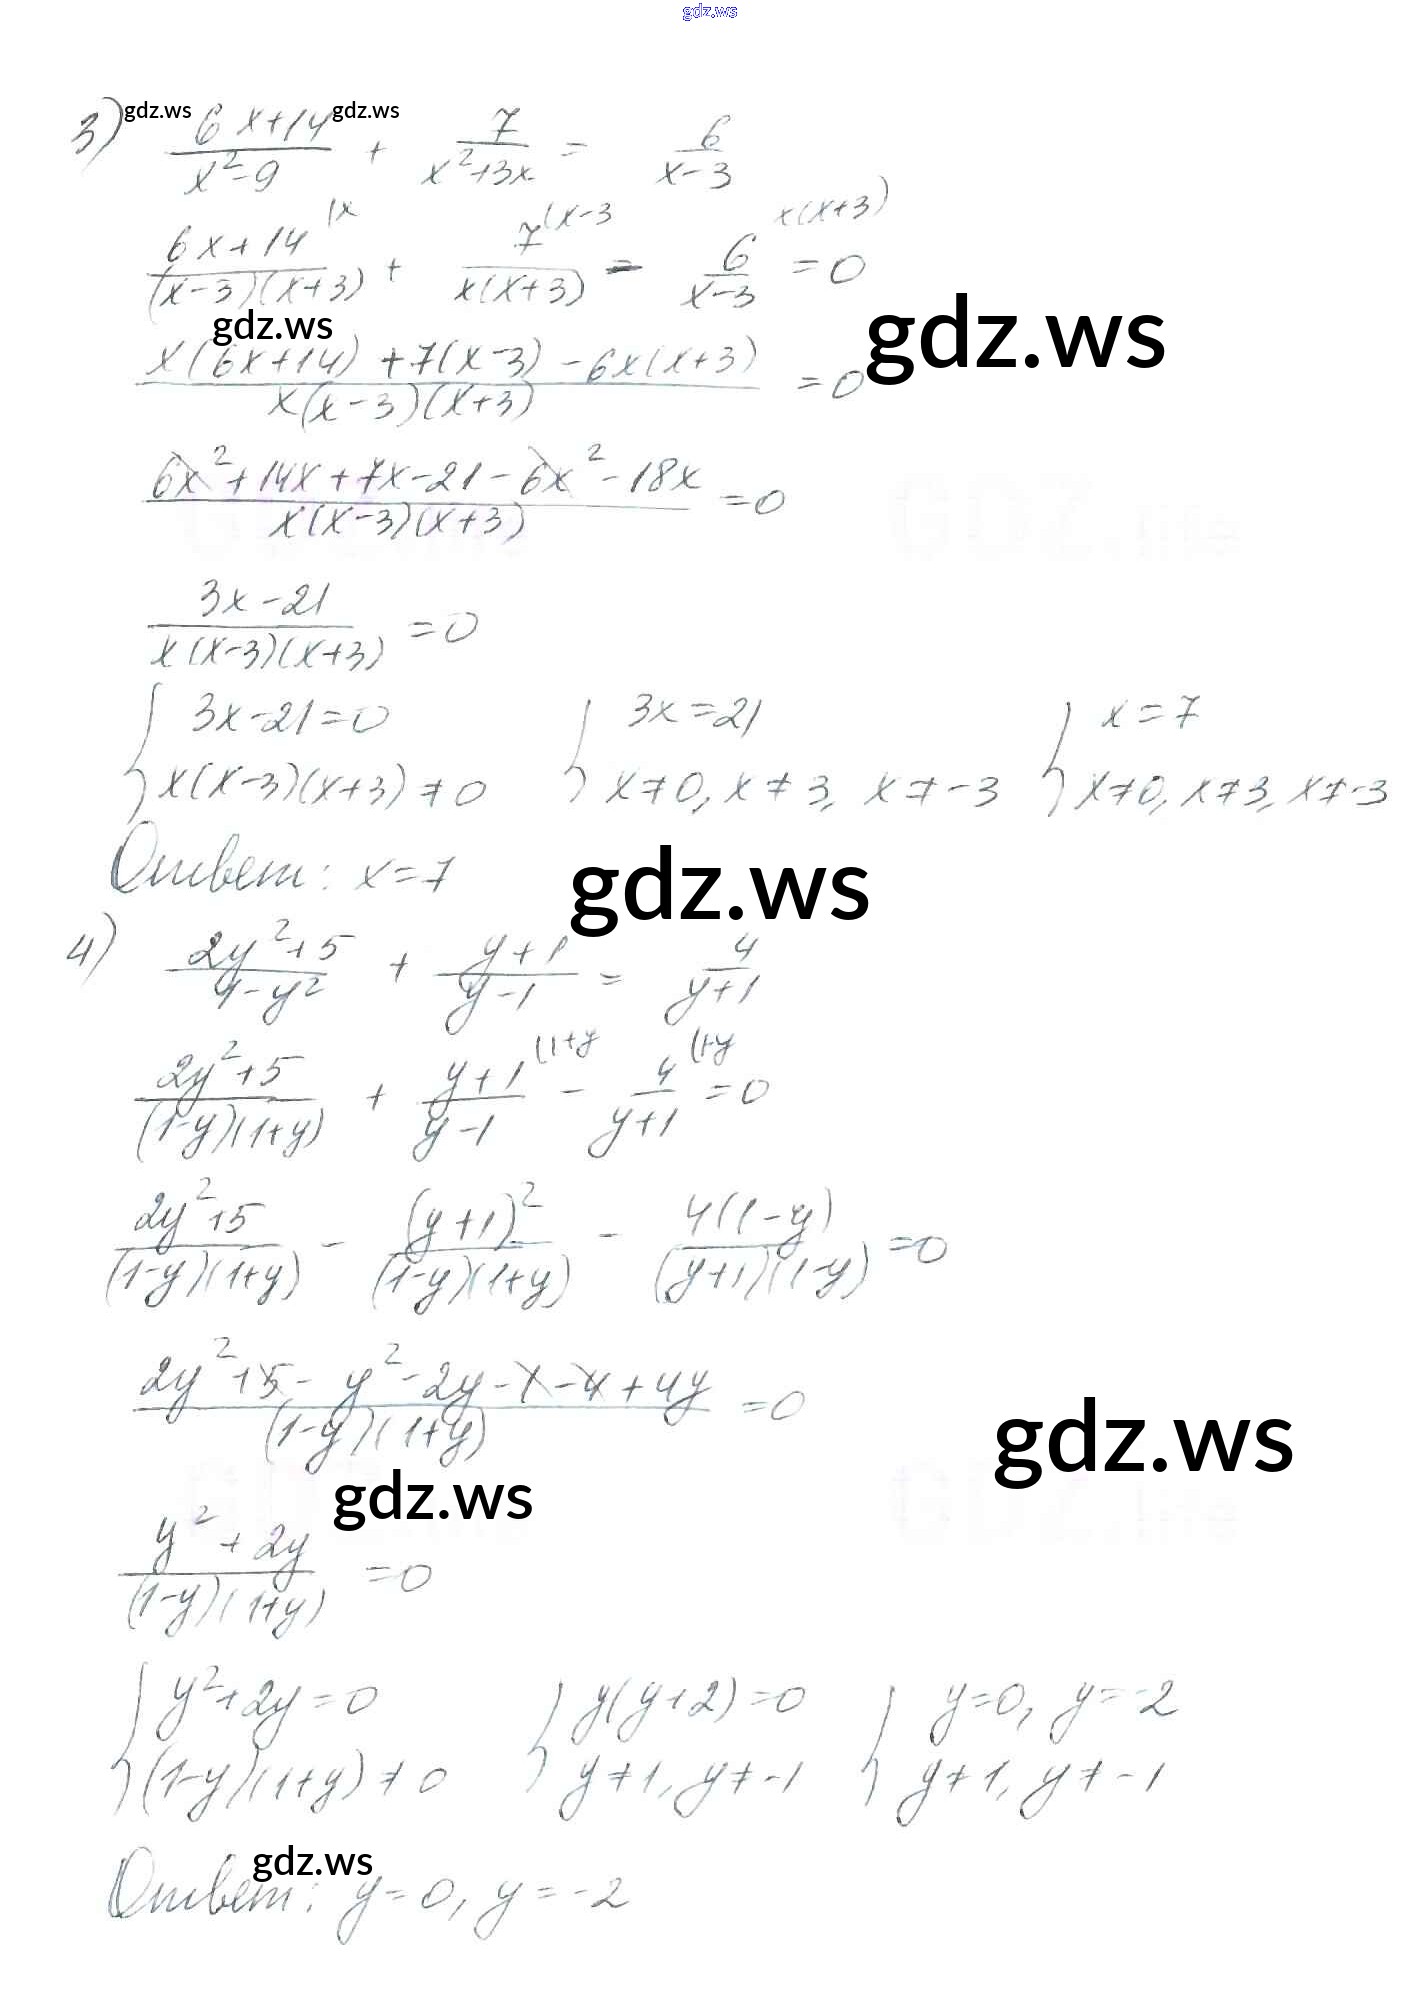 gdz.ws
3) gdz.ws gdz.ws
(6x+14)/(x²-9) + 7/(x²+3x) = 6/(x-3)
(6x+14)/((x-3)(x+3)) (x + 7/(x(x+3)) (x-3 - 6/(x-3) x(x+3) = 0
gdz.ws gdz.ws
(x(6x+14)+7(x-3)-6x(x+3))/(x(x-3)(x+3)) = 0
(6x²+14x+7x-21-6x²-18x)/(x(x-3)(x+3)) = 0
(3x-21)/(x(x-3)(x+3)) = 0
{ 3x-21=0 { 3x=21 { x=7
x(x-3)(x+3)≠0 x≠0, x≠3, x≠-3 x≠0, x≠3, x≠-3
Ответ: x=7 gdz.ws
4) (2y²+5)/(1-y²) + (y+1)/(y-1) = 4/(y+1)
(2y²+5)/((1-y)(1+y)) + (y+1)/(y-1) (1+y - 4/(y+1) (1-y = 0
(2y²+5)/((1-y)(1+y)) - (y+1)²/((1-y)(1+y)) - 4(1-y)/((y+1)(1-y)) = 0
(2y²+5-y²-2y-1-4+4y)/((1-y)(1+y)) = 0
gdz.ws gdz.ws
(y²+2y)/((1-y)(1+y)) = 0
{ y²+2y=0 { y(y+2)=0 { y=0, y=-2
(1-y)(1+y)≠0 y≠1, y≠-1 y≠1, y≠-1
gdz.ws
Ответ: y=0, y=-2